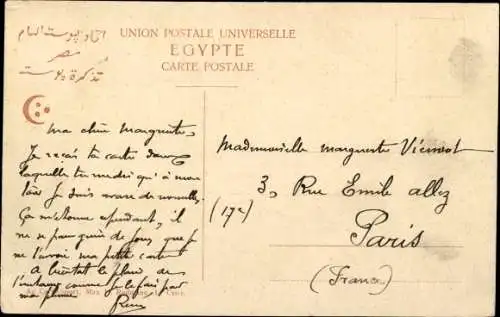 UNION POSTALE UNIVERSELLE
EGYPTE
CARTE POSTALE
مصر
Ma chère Marguerite,
Je reçois ta carte dans
laquelle tu me dis qu'à mon
tour Je suis avare de nouvelles
Ça m'étonne cependant, il
ne se passe de jours que je
ne t'envoie ma petite carte
A bientôt le plaisir de
comme je le fais par
ma plume
René
Mademoiselle Marguerite
3, Rue Emile Allez
(17e)
Paris
(France)